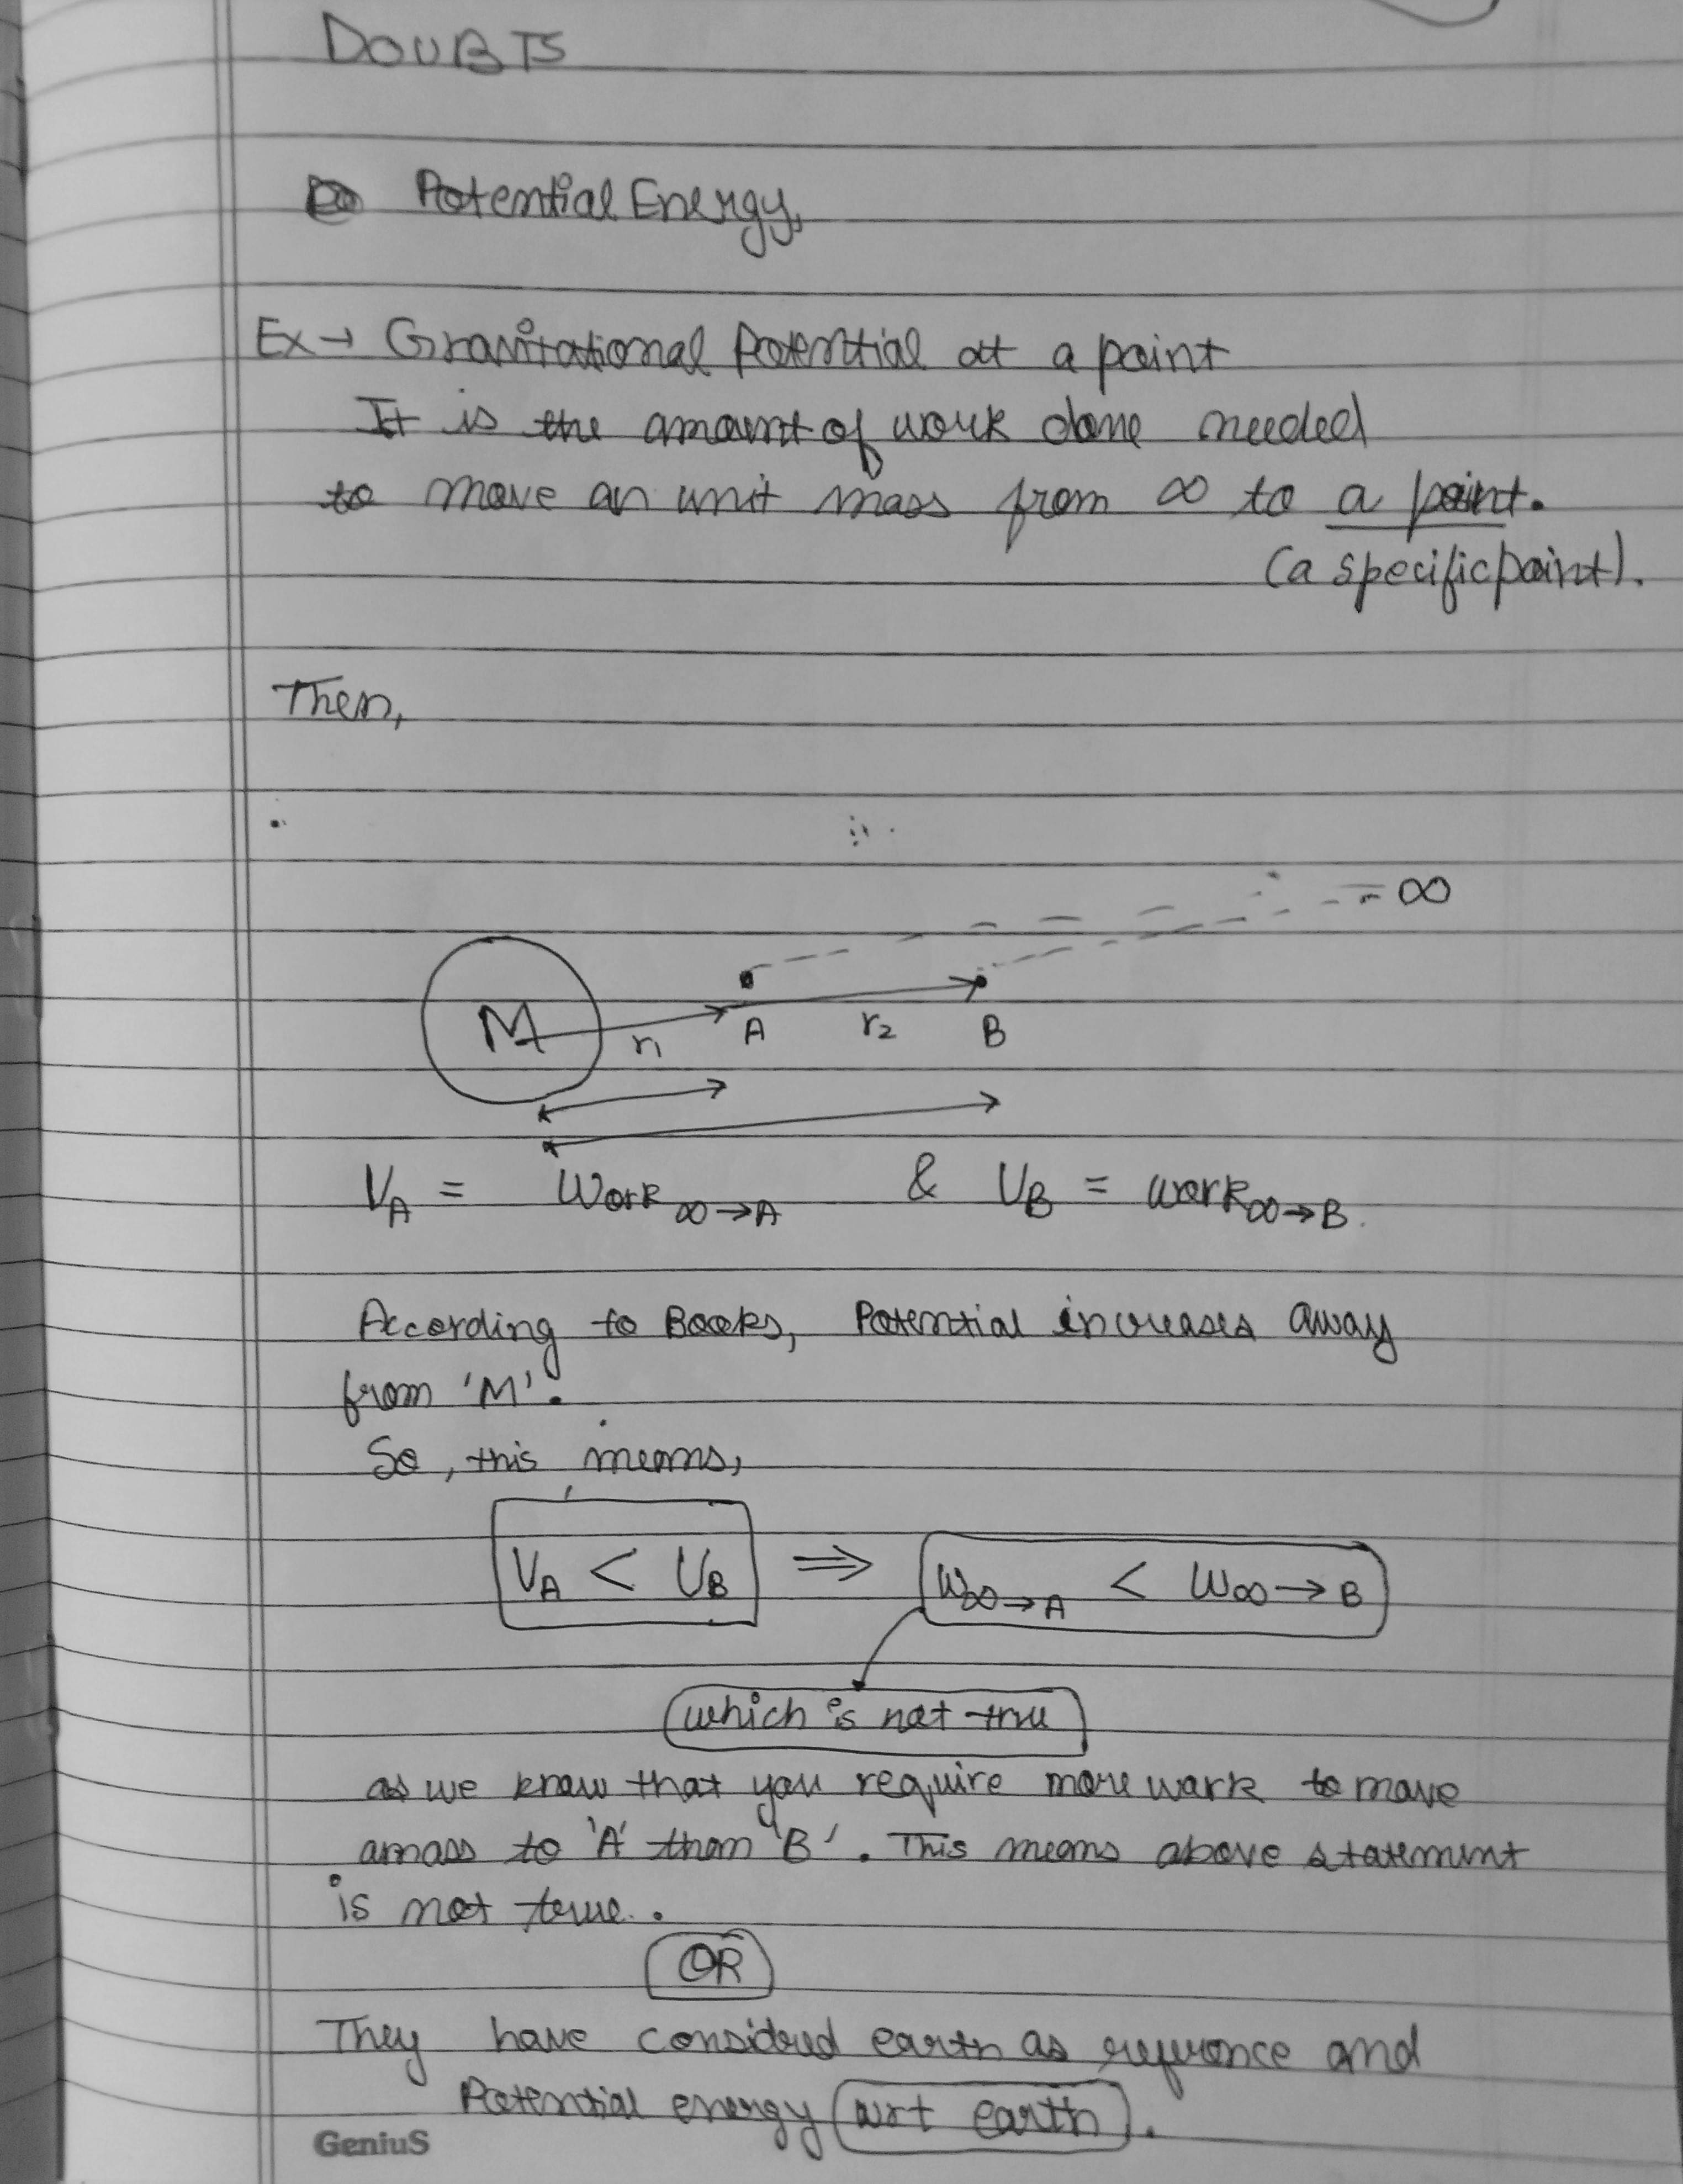 DOUBTS
Potential Energy,
Ex → Gravitational Potential at a point
It is the amount of work done needed
to move an unit mass from ∞ to a point.
(a specific point).
Then,
∞
M r1 A r2 B
VA = Work∞→A & VB = work∞→B.
According to Books, Potential increases away
from 'M'.
So, this means,
VA < VB ⇒ W∞→A < W∞→B
which is not true
as we know that you require more work to move
amass to 'A' than 'B'. This means above statement
is not true.
OR
They have considred earth as refernce and
Potential energy wrt earth.
GeniuS